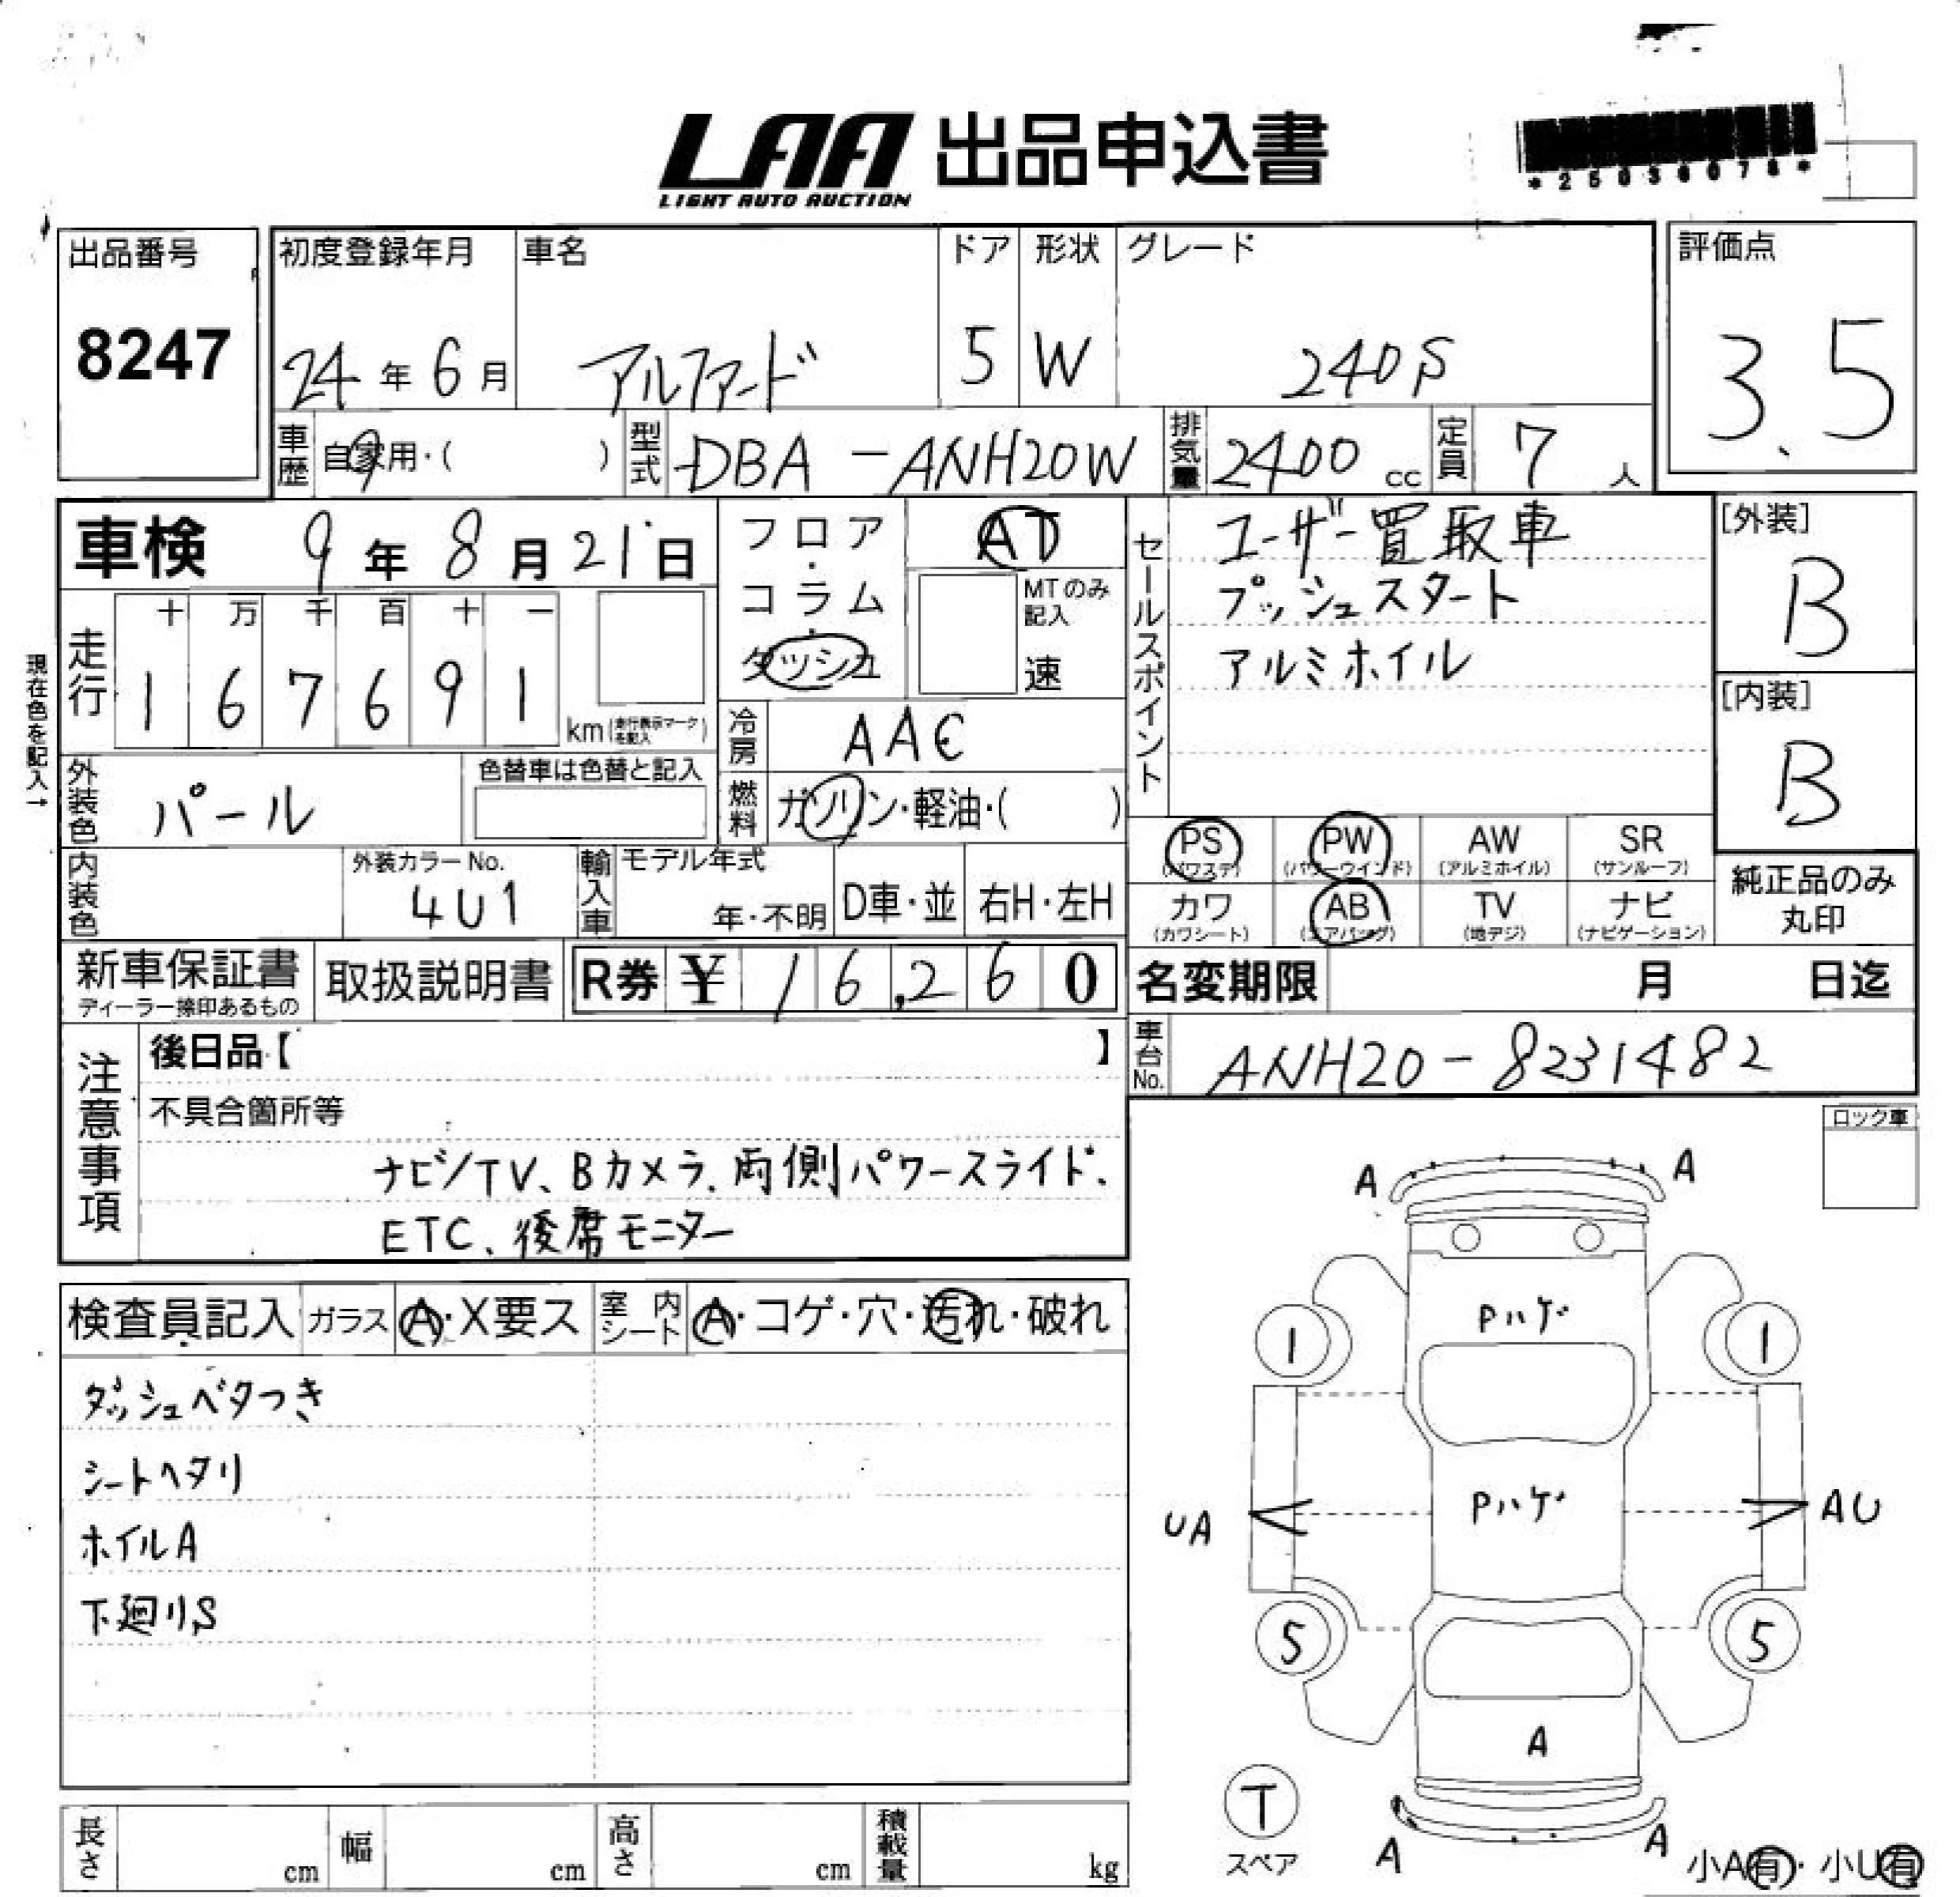 LAA 出品申込書
LIGHT AUTO AUCTION
出品番号
8247
初度登録年月
24年6月
車名
アルファード
ドア
5
形状
W
グレード
240S
評価点
3.5
車歴 自家用・( )
型式 DBA-ANH20W
排気量 2400 cc
定員 7 人
車検 9年8月21日
フロア・コラム・ダッシュ
AT
MTのみ記入
速
セールスポイント
ユーザー買取車
プッシュスタート
アルミホイル
[外装]
B
[内装]
B
現在色を記入→
走行
十 万 千 百 十 一
1 6 7 6 9 1
km(走行表示マークを記入)
冷房 AAC
燃料 ガソリン・軽油・( )
外装色 パール
色替車は色替と記入
内装色
外装カラーNo.
4U1
輸入車
モデル年式
年・不明
D車・並
右H・左H
PS (パワステ)
PW (パワーウインド)
AW (アルミホイル)
SR (サンルーフ)
カワ (カワシート)
AB (エアバッグ)
TV (地デジ)
ナビ (ナビゲーション)
純正品のみ丸印
新車保証書
ディーラー捺印あるもの
取扱説明書
R券 ¥ 16,260
名変期限 月 日迄
車台No. ANH20-8231482
注意事項
後日品【 】
不具合箇所等
ナビ/TV、Bカメラ、両側パワースライド、
ETC、後席モニター
ロック車
検査員記入
ガラス A・X要ス
室内シート A・コゲ・穴・汚れ・破れ
ダッシュベタつき
シートヘタリ
ホイルA
下廻りS
A A
Pハゲ
1 1
Pハゲ
UA AU
5 5
A
T
スペア
A A
小A有・小U有
長さ cm
幅 cm
高さ cm
積載量 kg